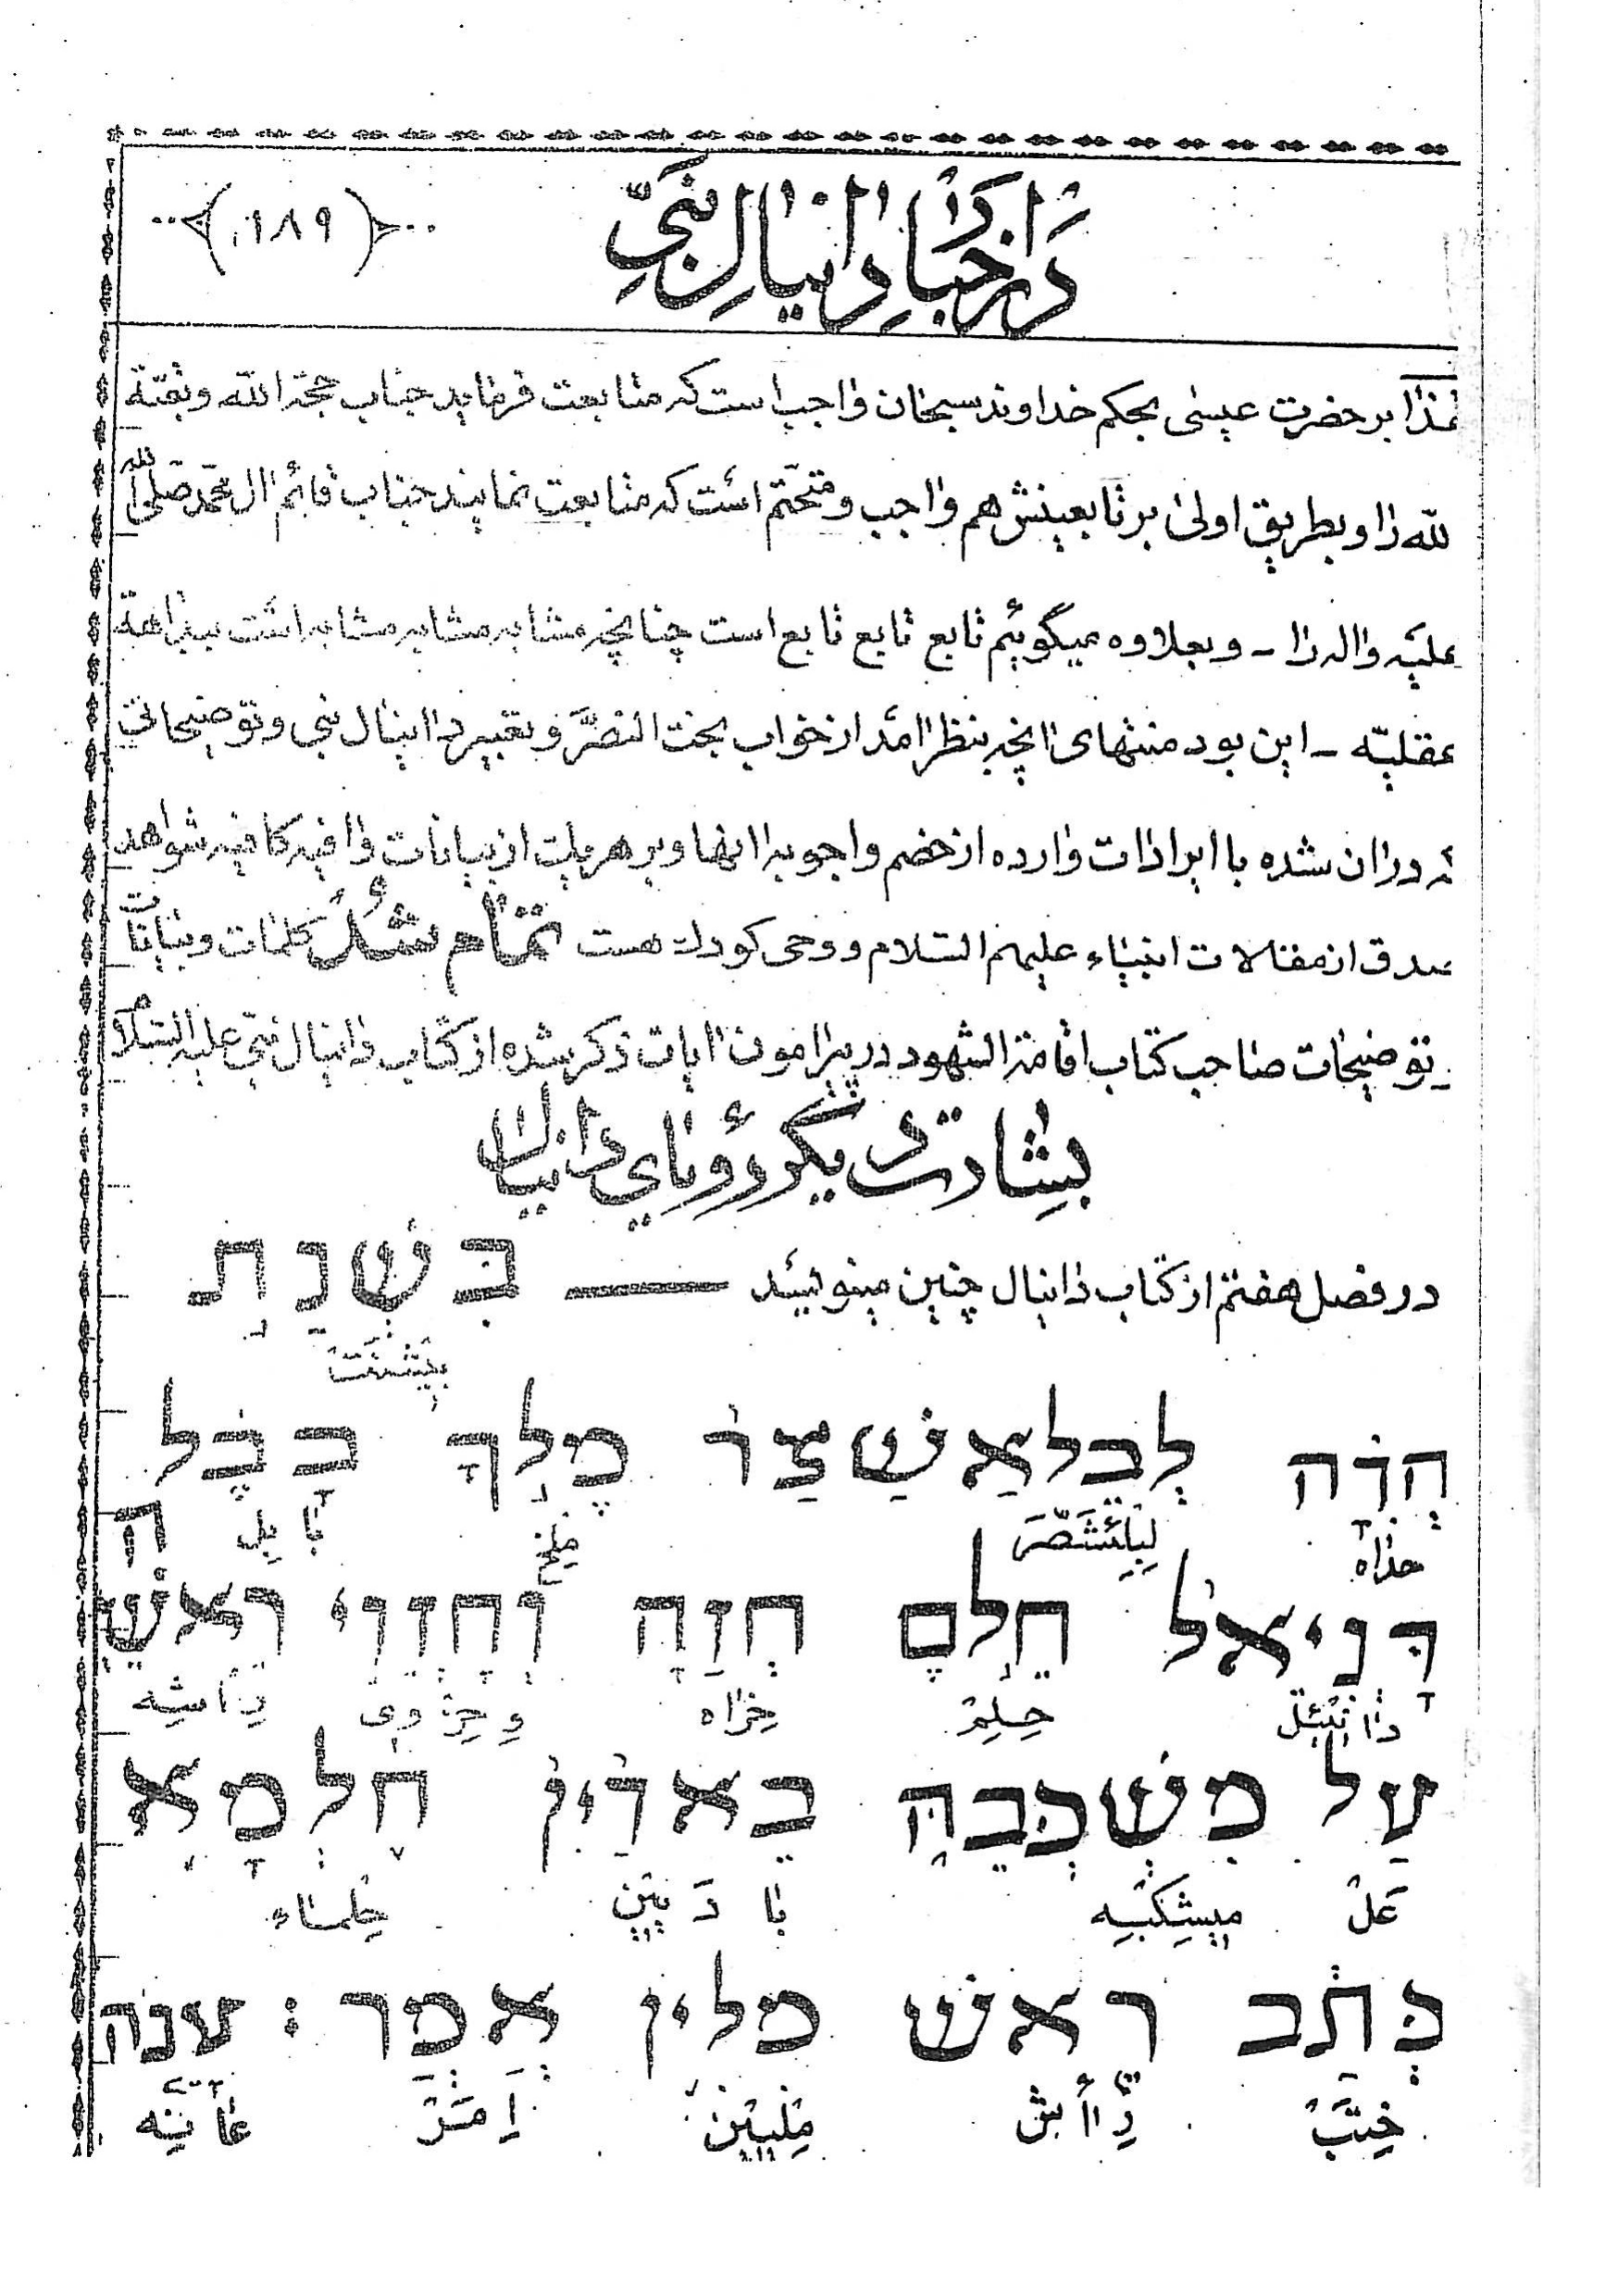 در اخبار دانیال نبی
(۱۸۹)
لهذا بر حضرت عیسی بحکم خداوند سبحان واجب است که متابعت فرماید جناب حجة الله و بقیّة
الله را و بطریق اولی بر تابعینش هم واجب و متحتّم است که متابعت نمایند جناب قائم ال محمّد صلی الله
علیه واله را - و بعلاوه میگوئیم تابع تابع تابع است چنانچه مشابه مشابه مشابه است ببداهة
عقلیّه - این بود منتهای انچه بنظر امد از خواب بخت النصر و تعبیر دانیال نبی و توضیحاتی
که در ان شده با ایرادات وارده از خصم و اجوبه انها و بر هر یک از بیانات وافیه کافیه شواهد
صدق از مقالات انبیاء علیهم السلام و وحی کودک هست تمام شد کلمات و بیانات
و توضیحات صاحب کتاب اقامة الشهود در پیرامون ایات ذکر شده از کتاب دانیال نبی علیه السلام
بشارت دیگر رؤیای دانیال
در فصل هفتم از کتاب دانیال چنین مینویسد — בִּשְׁנַת
بیشنت
חֲדָה לְבֵלְאשַׁצַּר מֶלֶךְ בָּבֶל
حداه لبلئشصر ملخ بابل
דָּנִיֵּאל חֵלֶם חֲזָה וְחֶזְוֵי רֵאשֵׁהּ
دانیئل حلم خزاه و حزوی راشه
עַל מִשְׁכְּבֵהּ בֵּאדַיִן חֶלְמָא
عل میشکبه با دیین حلماء
כְתַב רֵאשׁ מִלִּין אֲמַר : עָנֵה
ختب راش ملیین امر عانه